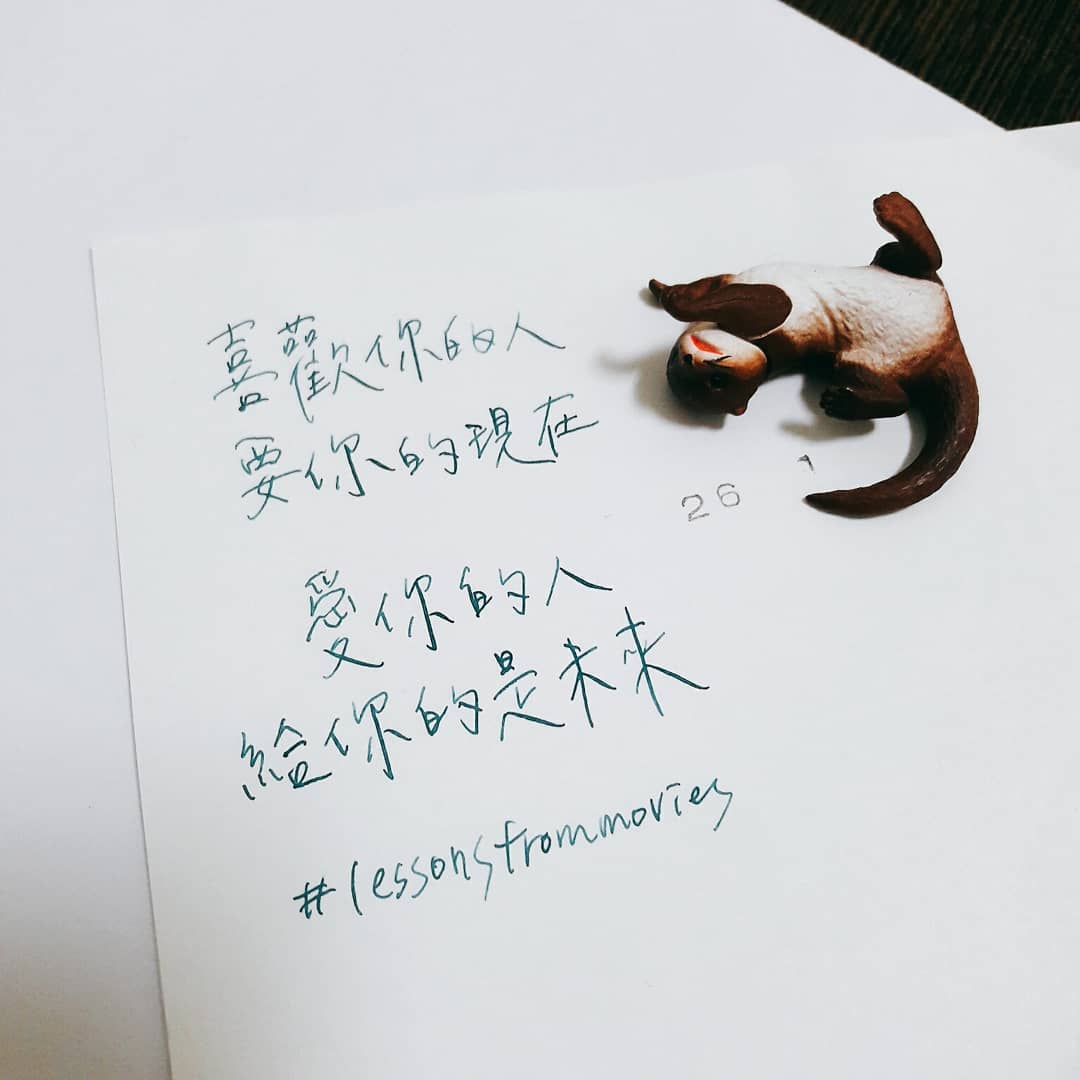 喜歡你的人
要你的現在
26 1
愛你的人
給你的是未來
#lessonsfrommovies